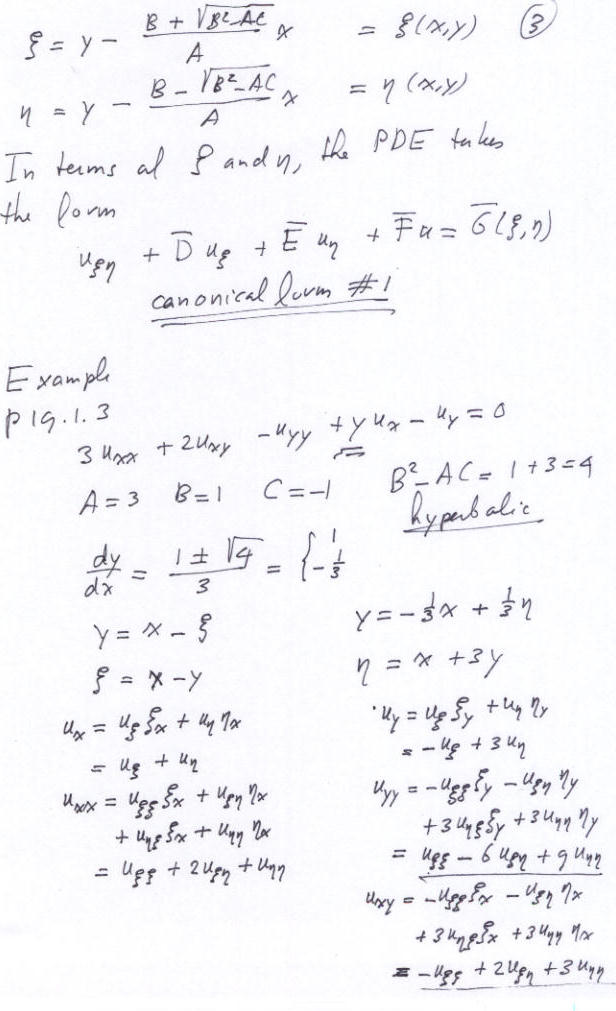 ξ = y - (B + √(B²-AC))/A x = ξ(x,y) ③
η = y - (B - √(B²-AC))/A x = η(x,y)
In terms of ξ and η, the PDE takes
the form
u_ξη + D̄ u_ξ + Ē u_η + F̄ u = Ḡ(ξ,η)
canonical form #1
Example
p 19.1.3
3 u_xx + 2u_xy - u_yy + y u_x - u_y = 0
A = 3 B = 1 C = -1 B² - AC = 1 + 3 = 4
hyperbolic
dy/dx = (1 ± √4)/3 = { 1, -1/3
y = x - ξ
ξ = x - y
u_x = u_ξ ξ_x + u_η η_x
= u_ξ + u_η
u_xx = u_ξξ ξ_x + u_ξη η_x
+ u_ηξ ξ_x + u_ηη η_x
= u_ξξ + 2u_ξη + u_ηη
y = -1/3 x + 1/3 η
η = x + 3y
u_y = u_ξ ξ_y + u_η η_y
= -u_ξ + 3u_η
u_yy = -u_ξξ ξ_y - u_ξη η_y
+ 3u_ηξ ξ_y + 3u_ηη η_y
= u_ξξ - 6u_ξη + 9u_ηη
u_xy = -u_ξξ ξ_x - u_ξη η_x
+ 3u_ηξ ξ_x + 3u_ηη η_x
= -u_ξξ + 2u_ξη + 3u_ηη